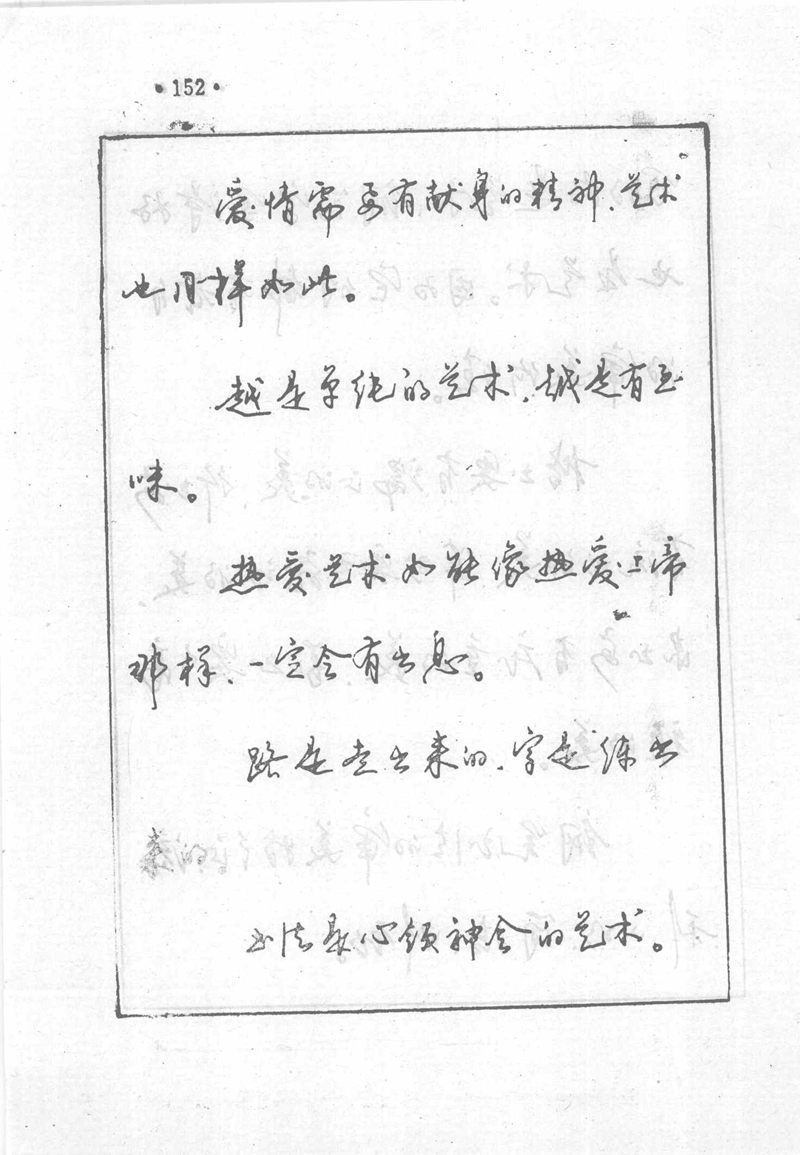 ·152·
爱情需要有献身的精神、艺术
也同样如此。
越是单纯的艺术，越是有至
味。
热爱艺术如能像热爱上帝
那样、一定会有出息。
路是走出来的，字是练出
来的。
书法是心领神会的艺术。